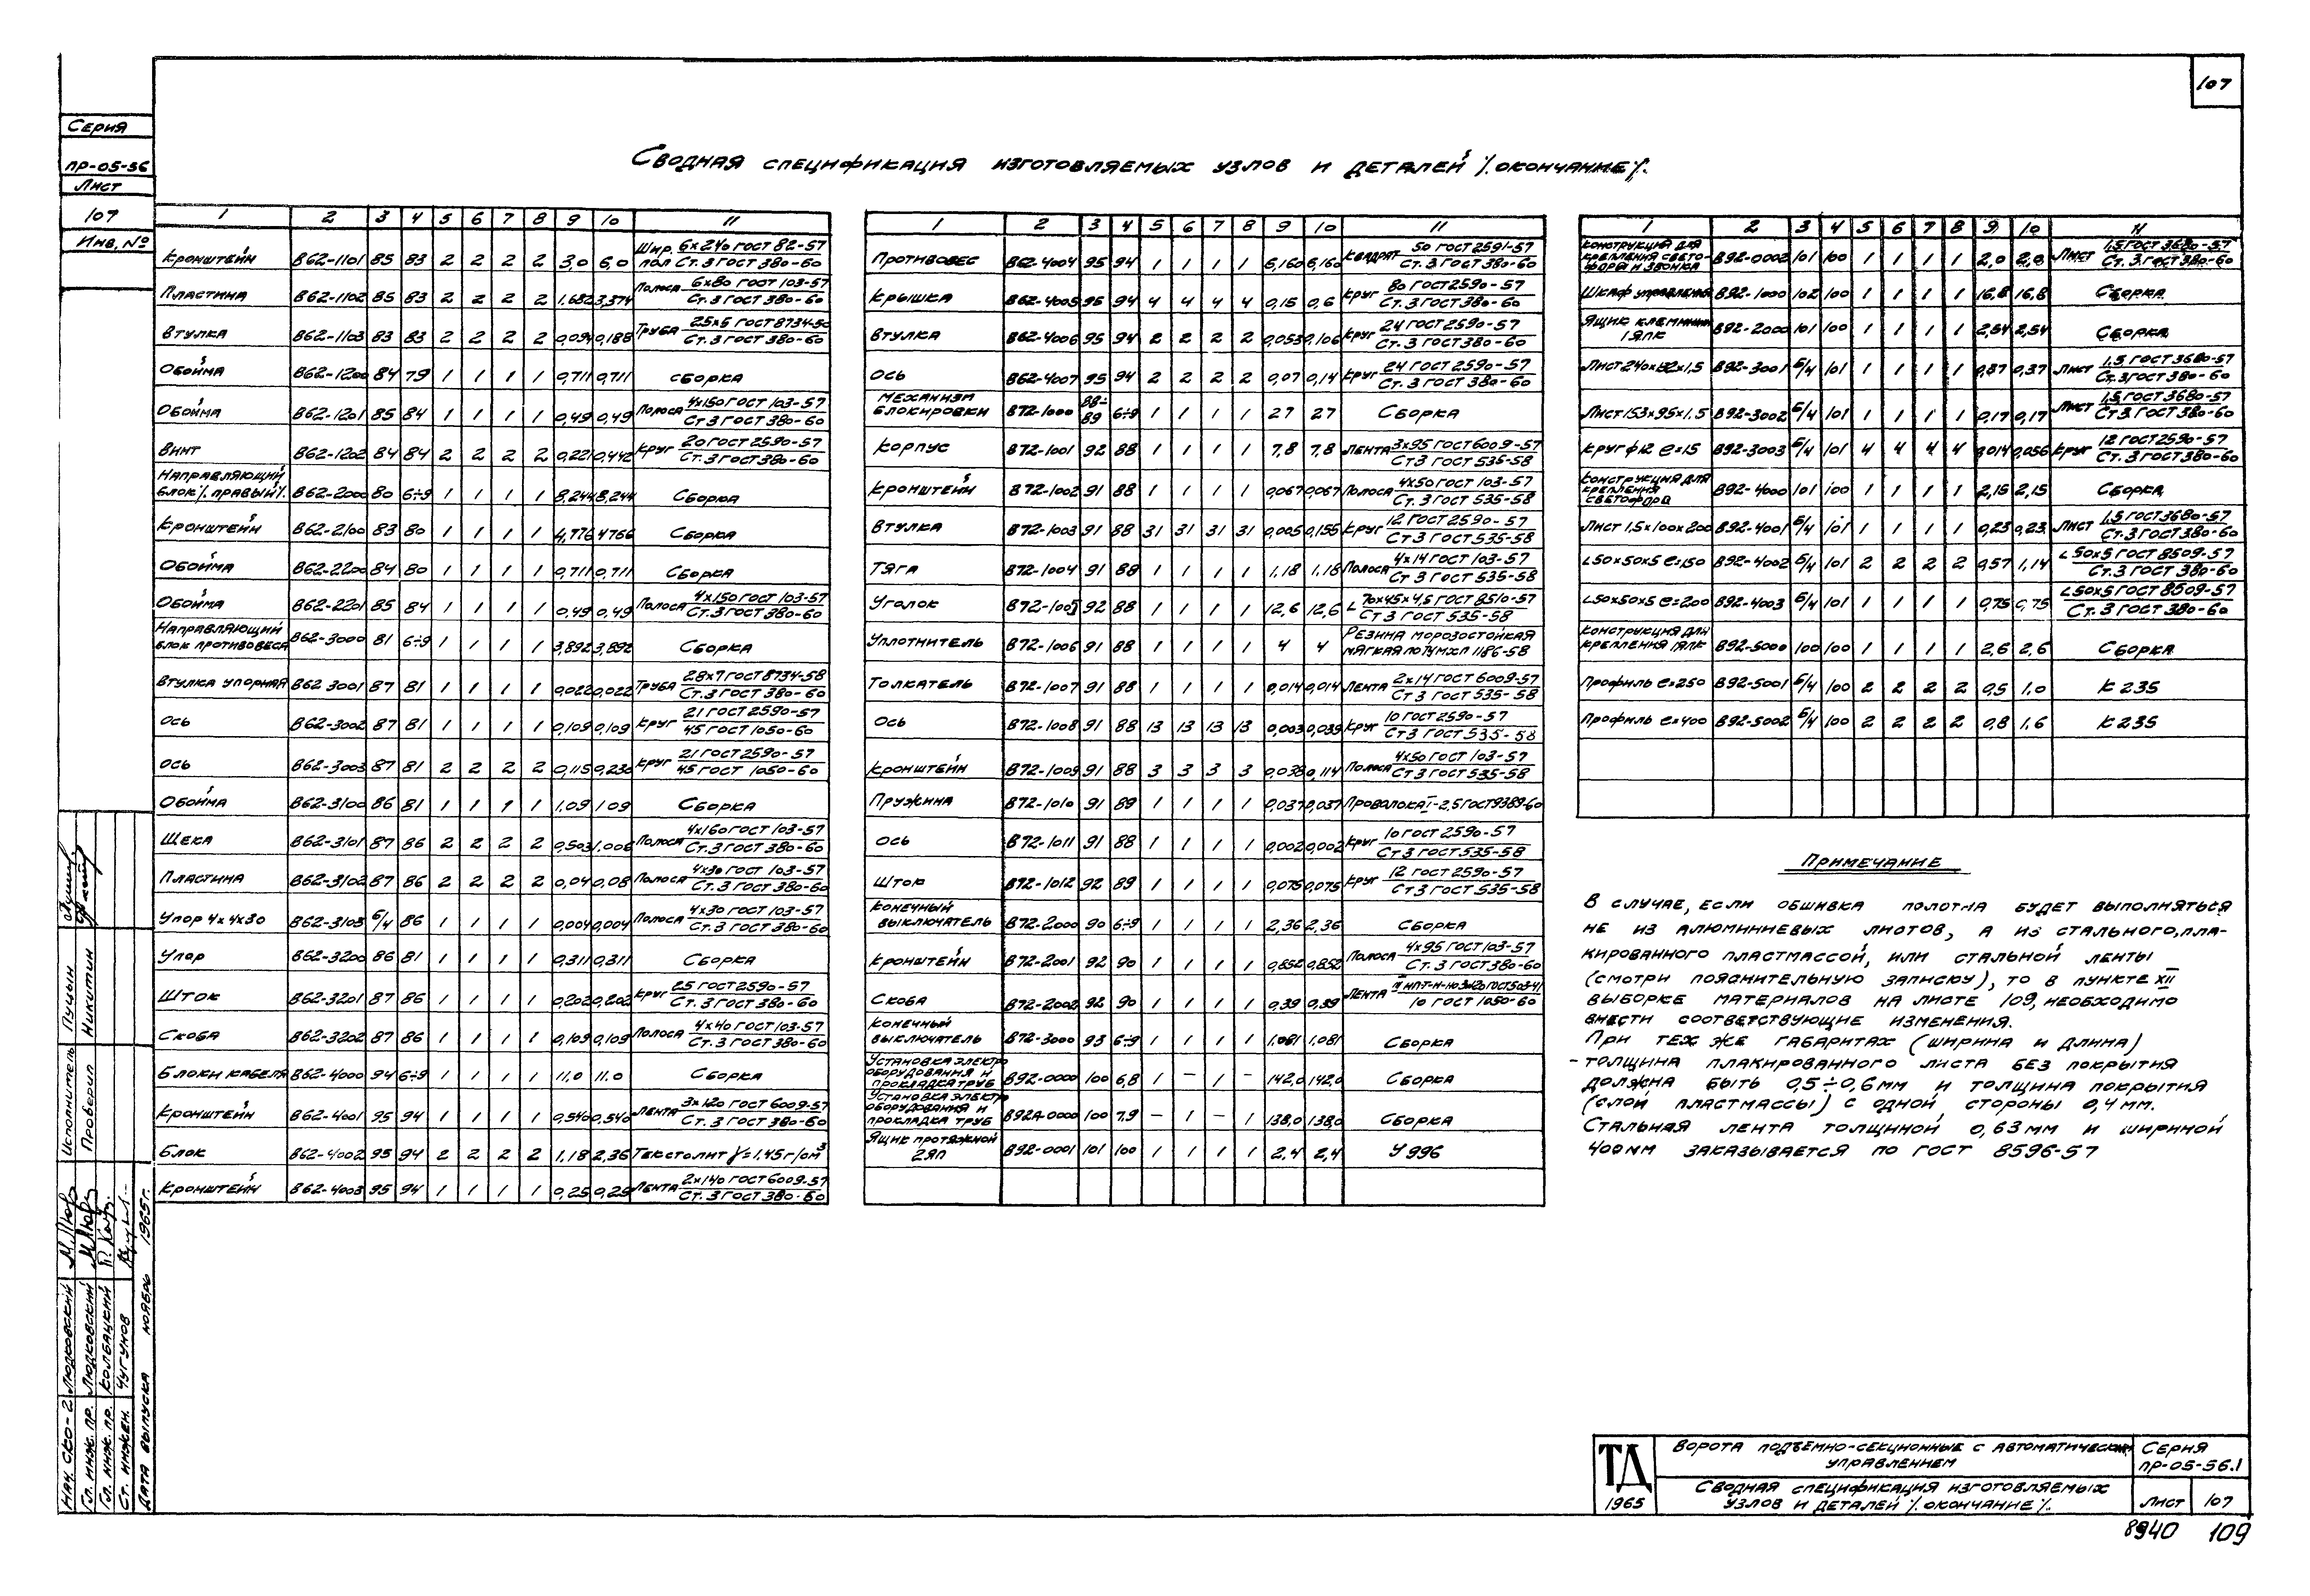 107
Серия
ПР-05-56
Лист
107
Инв. №
Сводная спецификация изготовляемых узлов и деталей /окончание/.
1 2 3 4 5 6 7 8 9 10 11
Кронштейн В62-1101 85 83 2 2 2 2 3,0 6,0 Шир. пол 6х240 ГОСТ 82-57 Ст.3 ГОСТ 380-60
Пластина В62-1102 85 83 2 2 2 2 3,374 Полоса 6х80 ГОСТ 103-57 Ст.3 ГОСТ 380-60
Втулка В62-1103 83 83 2 2 2 2 0,094 0,188 Труба 25х5 ГОСТ 8734-50 Ст.3 ГОСТ 380-60
Обойма В62-1200 84 79 1 1 1 1 0,711 0,711 Сборка
Обойма В62-1201 85 84 1 1 1 1 0,49 0,49 Полоса 4х150 ГОСТ 103-57 Ст3 ГОСТ 380-60
Винт В62-1202 84 84 2 2 2 2 0,221 0,442 Круг 20 ГОСТ 2590-57 Ст.3 ГОСТ 380-60
Направляющий
блок /правый/. В62-2000 80 6÷9 1 1 1 1 8,244 8,244 Сборка
Кронштейн В62-2100 83 80 1 1 1 1 4,776 4766 Сборка
Обойма В62-2200 84 80 1 1 1 1 0,711 0,711 Сборка
Обойма В62-2201 85 84 1 1 1 1 0,49 0,49 Полоса 4х150 ГОСТ 103-57 Ст.3 ГОСТ 380-60
Направляющий
блок противовеса В62-3000 81 6÷9 1 1 1 1 3,892 3,892 Сборка
Втулка упорная В62 3001 87 81 1 1 1 1 0,022 0,022 Труба 28х7 ГОСТ 8734-58 Ст.3 ГОСТ 380-60
Ось В62-3002 87 81 1 1 1 1 0,109 0,109 Круг 21 ГОСТ 2590-57 45 ГОСТ 1050-60
Ось В62-3003 87 81 2 2 2 2 0,115 0,230 Круг 21 ГОСТ 2590-57 45 ГОСТ 1050-60
Обойма В62-3100 86 81 1 1 1 1 1,09 1,09 Сборка
Щека В62-3101 87 86 2 2 2 2 0,503 1,006 Полоса 4х160 ГОСТ 103-57 Ст.3 ГОСТ 380-60
Пластина В62-3102 87 86 2 2 2 2 0,04 0,08 Полоса 4х30 ГОСТ 103-57 Ст.3 ГОСТ 380-60
Упор 4х4х30 В62-3103 б/ч 86 1 1 1 1 0,004 0,004 Полоса 4х30 ГОСТ 103-57 Ст.3 ГОСТ 380-60
Упор В62-3200 86 81 1 1 1 1 0,311 0,311 Сборка
Шток В62-3201 87 86 1 1 1 1 0,202 0,202 Круг 25 ГОСТ 2590-57 Ст.3 ГОСТ 380-60
Скоба В62-3202 87 86 1 1 1 1 0,109 0,109 Полоса 4х40 ГОСТ 103-57 Ст.3 ГОСТ 380-60
Блоки кабеля В62-4000 94 6÷9 1 1 1 1 11,0 11,0 Сборка
Кронштейн В62-4001 95 94 1 1 1 1 0,540 0,540 Лента 3х120 ГОСТ 6009-57 Ст.3 ГОСТ 380-60
Блок В62-4002 95 94 2 2 2 2 1,18 2,36 Текстолит γ=1.45 г/см³
Кронштейн В62-4003 95 94 1 1 1 1 0,25 0,25 Лента 2х140 ГОСТ 6009-57 Ст.3 ГОСТ 380-60
1 2 3 4 5 6 7 8 9 10 11
Противовес В62-4004 95 94 1 1 1 1 6,160 6,160 Квадрат 50 ГОСТ 2591-57 Ст.3 ГОСТ 380-60
Крышка В62-4005 95 94 4 4 4 4 0,15 0,6 Круг 80 ГОСТ 2590-57 Ст.3 ГОСТ 380-60
Втулка В62-4006 95 94 2 2 2 2 0,053 0,106 Круг 24 ГОСТ 2590-57 Ст.3 ГОСТ 380-60
Ось В62-4007 95 94 2 2 2 2 0,07 0,14 Круг 24 ГОСТ 2590-57 Ст.3 ГОСТ 380-60
Механизм
блокировки В72-1000 88÷89 6÷9 1 1 1 1 27 27 Сборка
Корпус В72-1001 92 88 1 1 1 1 7,8 7,8 Лента 3х95 ГОСТ 6009-57 Ст3 ГОСТ 535-58
Кронштейн В72-1002 91 88 1 1 1 1 0,067 0,067 Полоса 4х50 ГОСТ 103-57 Ст.3 ГОСТ 535-58
Втулка В72-1003 91 88 31 31 31 31 0,005 0,155 Круг 12 ГОСТ 2590-57 Ст3 ГОСТ 535-58
Тяга В72-1004 91 88 1 1 1 1 1,18 1,18 Полоса 4х14 ГОСТ 103-57 Ст 3 ГОСТ 535-58
Уголок В72-1005 92 88 1 1 1 1 12,6 12,6 L 70х45х4,5 ГОСТ 8510-57 Ст3 ГОСТ 535-58
Уплотнитель В72-1006 91 88 1 1 1 1 4 4 Резина морозостойкая мягкая по ТУМХП 1186-58
Толкатель В72-1007 91 88 1 1 1 1 0,014 0,014 Лента 2х14 ГОСТ 6009-57 Ст 3 ГОСТ 535-58
Ось В72-1008 91 88 13 13 13 13 0,003 0,039 Круг 10 ГОСТ 2590-57 Ст3 ГОСТ 535-58
Кронштейн В72-1009 91 88 3 3 3 3 0,038 0,114 Полоса 4х50 ГОСТ 103-57 Ст3 ГОСТ 535-58
Пружина В72-1010 91 89 1 1 1 1 0,037 0,037 Проволока I-2,5 ГОСТ 9389-60
Ось В72-1011 91 88 1 1 1 1 0,002 0,002 Круг 10 ГОСТ 2590-57 Ст3 ГОСТ 535-58
Шток В72-1012 92 89 1 1 1 1 0,075 0,075 Круг 12 ГОСТ 2590-57 Ст3 ГОСТ 535-58
Конечный
выключатель В72-2000 90 6÷9 1 1 1 1 2,36 2,36 Сборка
Кронштейн В72-2001 92 90 1 1 1 1 0,852 0,852 Полоса 4х95 ГОСТ 103-57 Ст.3 ГОСТ 380-60
Скоба В72-2002 92 90 1 1 1 1 0,39 0,39 Лента 10 ГОСТ 1050-60
Конечный
выключатель В72-3000 93 6÷9 1 1 1 1 1,081 1,081 Сборка
Установка электро
оборудования и
прокладка труб В92-0000 100 6,8 1 – 1 – 142,0 142,0 Сборка
Установка электро
оборудования и
прокладка труб В92А-0000 100 7,9 – 1 – 1 138,0 138,0 Сборка
Ящик протяжной
2ЯП В92-0001 101 100 1 1 1 1 2,4 2,4 У996
1 2 3 4 5 6 7 8 9 10 11
Конструкция для
крепления свето-
фора и звонка В92-0002 101 100 1 1 1 1 2,0 2,0 Лист 1,5 ГОСТ 3680-57 Ст.3 ГОСТ 380-60
Шкаф управления В92-1000 102 100 1 1 1 1 16,8 16,8 Сборка
Ящик клеммный
1ЯЛК В92-2000 101 100 1 1 1 1 2,54 2,54 Сборка
Лист 240х132х1,5 В92-3001 б/ч 101 1 1 1 1 0,37 0,37 Лист 1,5 ГОСТ 3680-57 Ст.3 ГОСТ 380-60
Лист 153х95х1,5 В92-3002 б/ч 101 1 1 1 1 0,17 0,17 Лист 1,5 ГОСТ 3680-57 Ст3 ГОСТ 380-60
Круг ф12 ℓ=15 В92-3003 б/ч 101 4 4 4 4 0,014 0,056 Круг 12 ГОСТ 2590-57 Ст.3 ГОСТ 380-60
Конструкция для
крепления
светофора В92-4000 101 100 1 1 1 1 2,15 2,15 Сборка
Лист 1,5х100х200 В92-4001 б/ч 101 1 1 1 1 0,23 0,23 Лист 1,5 ГОСТ 3680-57 Ст.3 ГОСТ 380-60
L50х50х5 ℓ=150 В92-4002 б/ч 101 2 2 2 2 0,57 1,14 L 50х5 ГОСТ 8509-57 Ст.3 ГОСТ 380-60
L50х50х5 ℓ=200 В92-4003 б/ч 101 1 1 1 1 0,75 0,75 L 50х5 ГОСТ 8509-57 Ст.3 ГОСТ 380-60
Конструкция для
крепления 1ЯЛК В92-5000 100 100 1 1 1 1 2,6 2,6 Сборка
Профиль ℓ=250 В92-5001 б/ч 100 2 2 2 2 0,5 1,0 К 235
Профиль ℓ=400 В92-5002 б/ч 100 2 2 2 2 0,8 1,6 К 235
Примечание
В случае, если обшивка полотна будет выполняться
не из алюминиевых листов, а из стального, пла-
кированного пластмассой, или стальной ленты
(смотри пояснительную записку), то в пункте XII
выборке материалов на листе 109, необходимо
внести соответствующие изменения.
При тех же габаритах (ширина и длина)
- толщина плакированного листа без покрытия
должна быть 0,5÷0,6мм и толщина покрытия
(слой пластмассы) с одной стороны 0,4 мм.
Стальная лента толщиной 0,63 мм и шириной
400мм заказывается по ГОСТ 8596-57
Исполнитель Пуцын
Проверил Никитин
Нач. СКО-2 Людковский
Гл. инж. пр. Людковский
Гл. инж. пр. Колбацкий
Ст. инжен. Чугунов
Дата выпуска ноябрь 1965г.
ТД
1965
Ворота подъемно-секционные с автоматическим
управлением
Серия
ПР-05-56.1
Сводная спецификация изготовляемых
узлов и деталей /окончание/.
Лист 107
8940 109